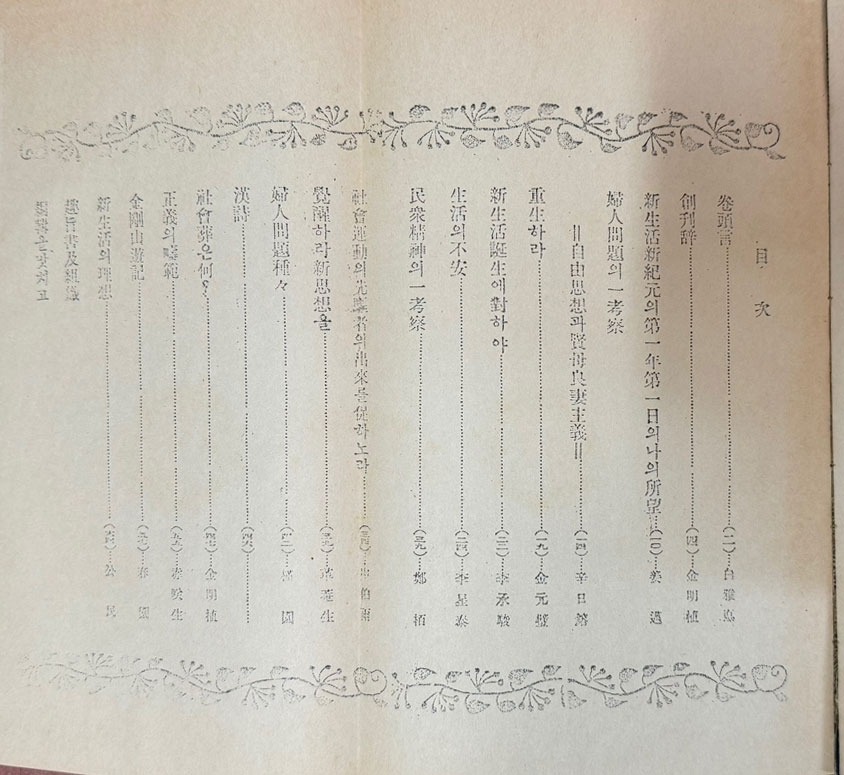 目次
卷頭言……(二)…白雅悳
創刊辭……(四)…金明植
新生活新紀元의第一年第一日의나의所望‖(一〇)…姜邁
婦人問題의一考察
‖自由思想과賢母良妻主義‖……(一四)…辛日鎔
重生하라……(一九)…金元璧
新生活誕生에對하야……(二二)…李承駿
生活의不安……(二四)…李星泰
民衆精神의一考察……(二九)…鄭栢
社會運動의先驅者의出來를促하노라……(三四)…申伯雨
覺醒하라新思想을……(三九)…生
婦人問題種々……(四二)…園
漢詩……(四六)
社會葬은何?……(四七)…金明植
正義의……(五六)…赤咲生
金剛山遊記……(五七)…春園
新生活의理想……公民
趣旨書及組織
編輯을맛치고